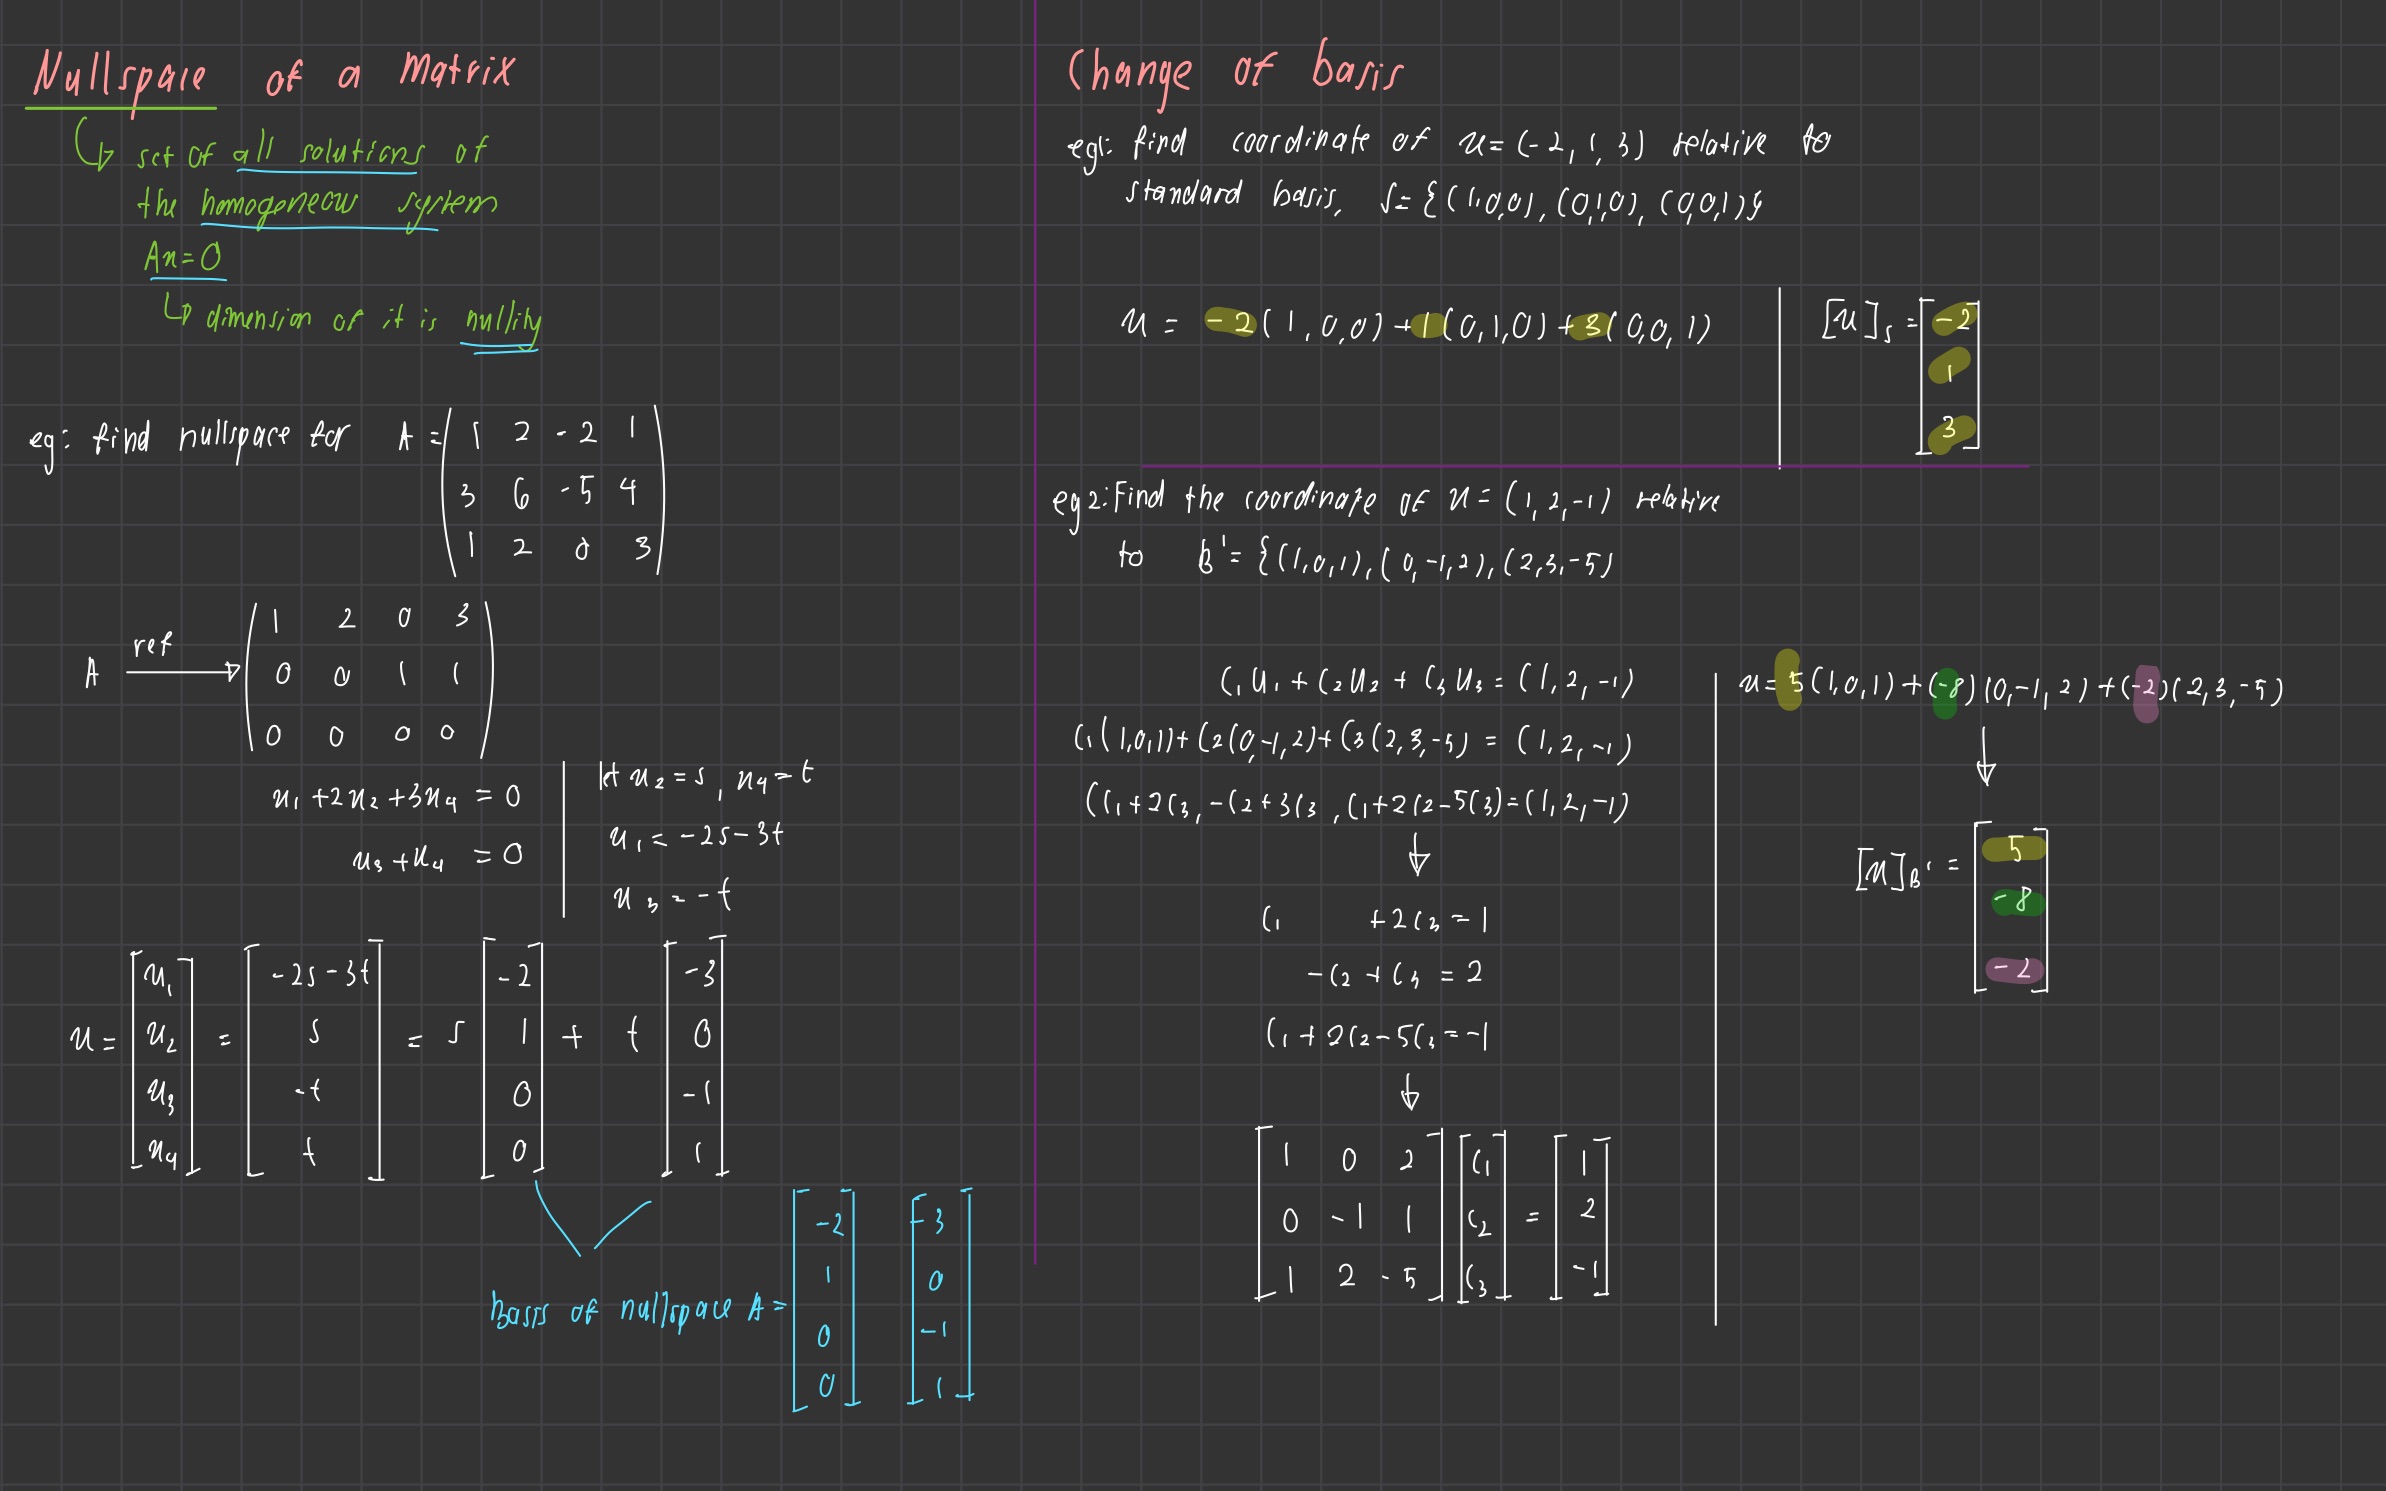 Nullspace of a Matrix
↳ set of all solutions of
the homogeneous system
Ax=0
↳ dimension of it is nullity
eg: find nullspace for A = ( 1 2 -2 1
3 6 -5 4
1 2 0 3 )
A ref → ( 1 2 0 3
0 0 1 1
0 0 0 0 )
x₁ + 2x₂ + 3x₄ = 0
x₃ + x₄ = 0
let x₂ = s, x₄ = t
x₁ = -2s - 3t
x₃ = -t
x = [x₁ x₂ x₃ x₄] = [-2s-3t s -t t] = s [-2 1 0 0] + t [-3 0 -1 1]
basis of nullspace A = [-2 1 0 0] [-3 0 -1 1]
Change of basis
eg1: find coordinate of x = (-2, 1, 3) relative to
standard basis, S = {(1,0,0), (0,1,0), (0,0,1)}
x = -2(1,0,0) + 1(0,1,0) + 3(0,0,1)
[x]s = [-2 1 3]
eg 2: Find the coordinate of x = (1, 2, -1) relative
to B' = {(1,0,1), (0,-1,2), (2,3,-5)
c₁u₁ + c₂u₂ + c₃u₃ = (1, 2, -1)
c₁(1,0,1) + c₂(0,-1,2) + c₃(2,3,-5) = (1, 2, -1)
(c₁ + 2c₃, -c₂ + 3c₃, c₁ + 2c₂ - 5c₃) = (1, 2, -1)
↓
c₁ + 2c₃ = 1
-c₂ + c₃ = 2
c₁ + 2c₂ - 5c₃ = -1
↓
[1 0 2
0 -1 1
1 2 -5] [c₁ c₂ c₃] = [1 2 -1]
x = 5(1,0,1) + (-8)(0,-1,2) + (-2)(2,3,-5)
↓
[x]B' = [5 -8 -2]